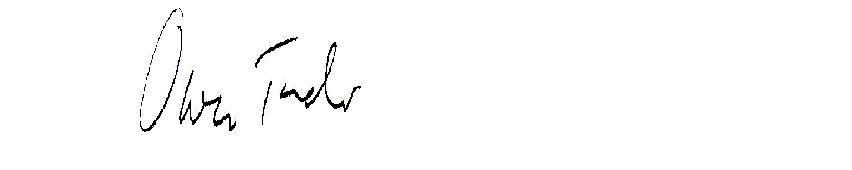 Owen Tudor